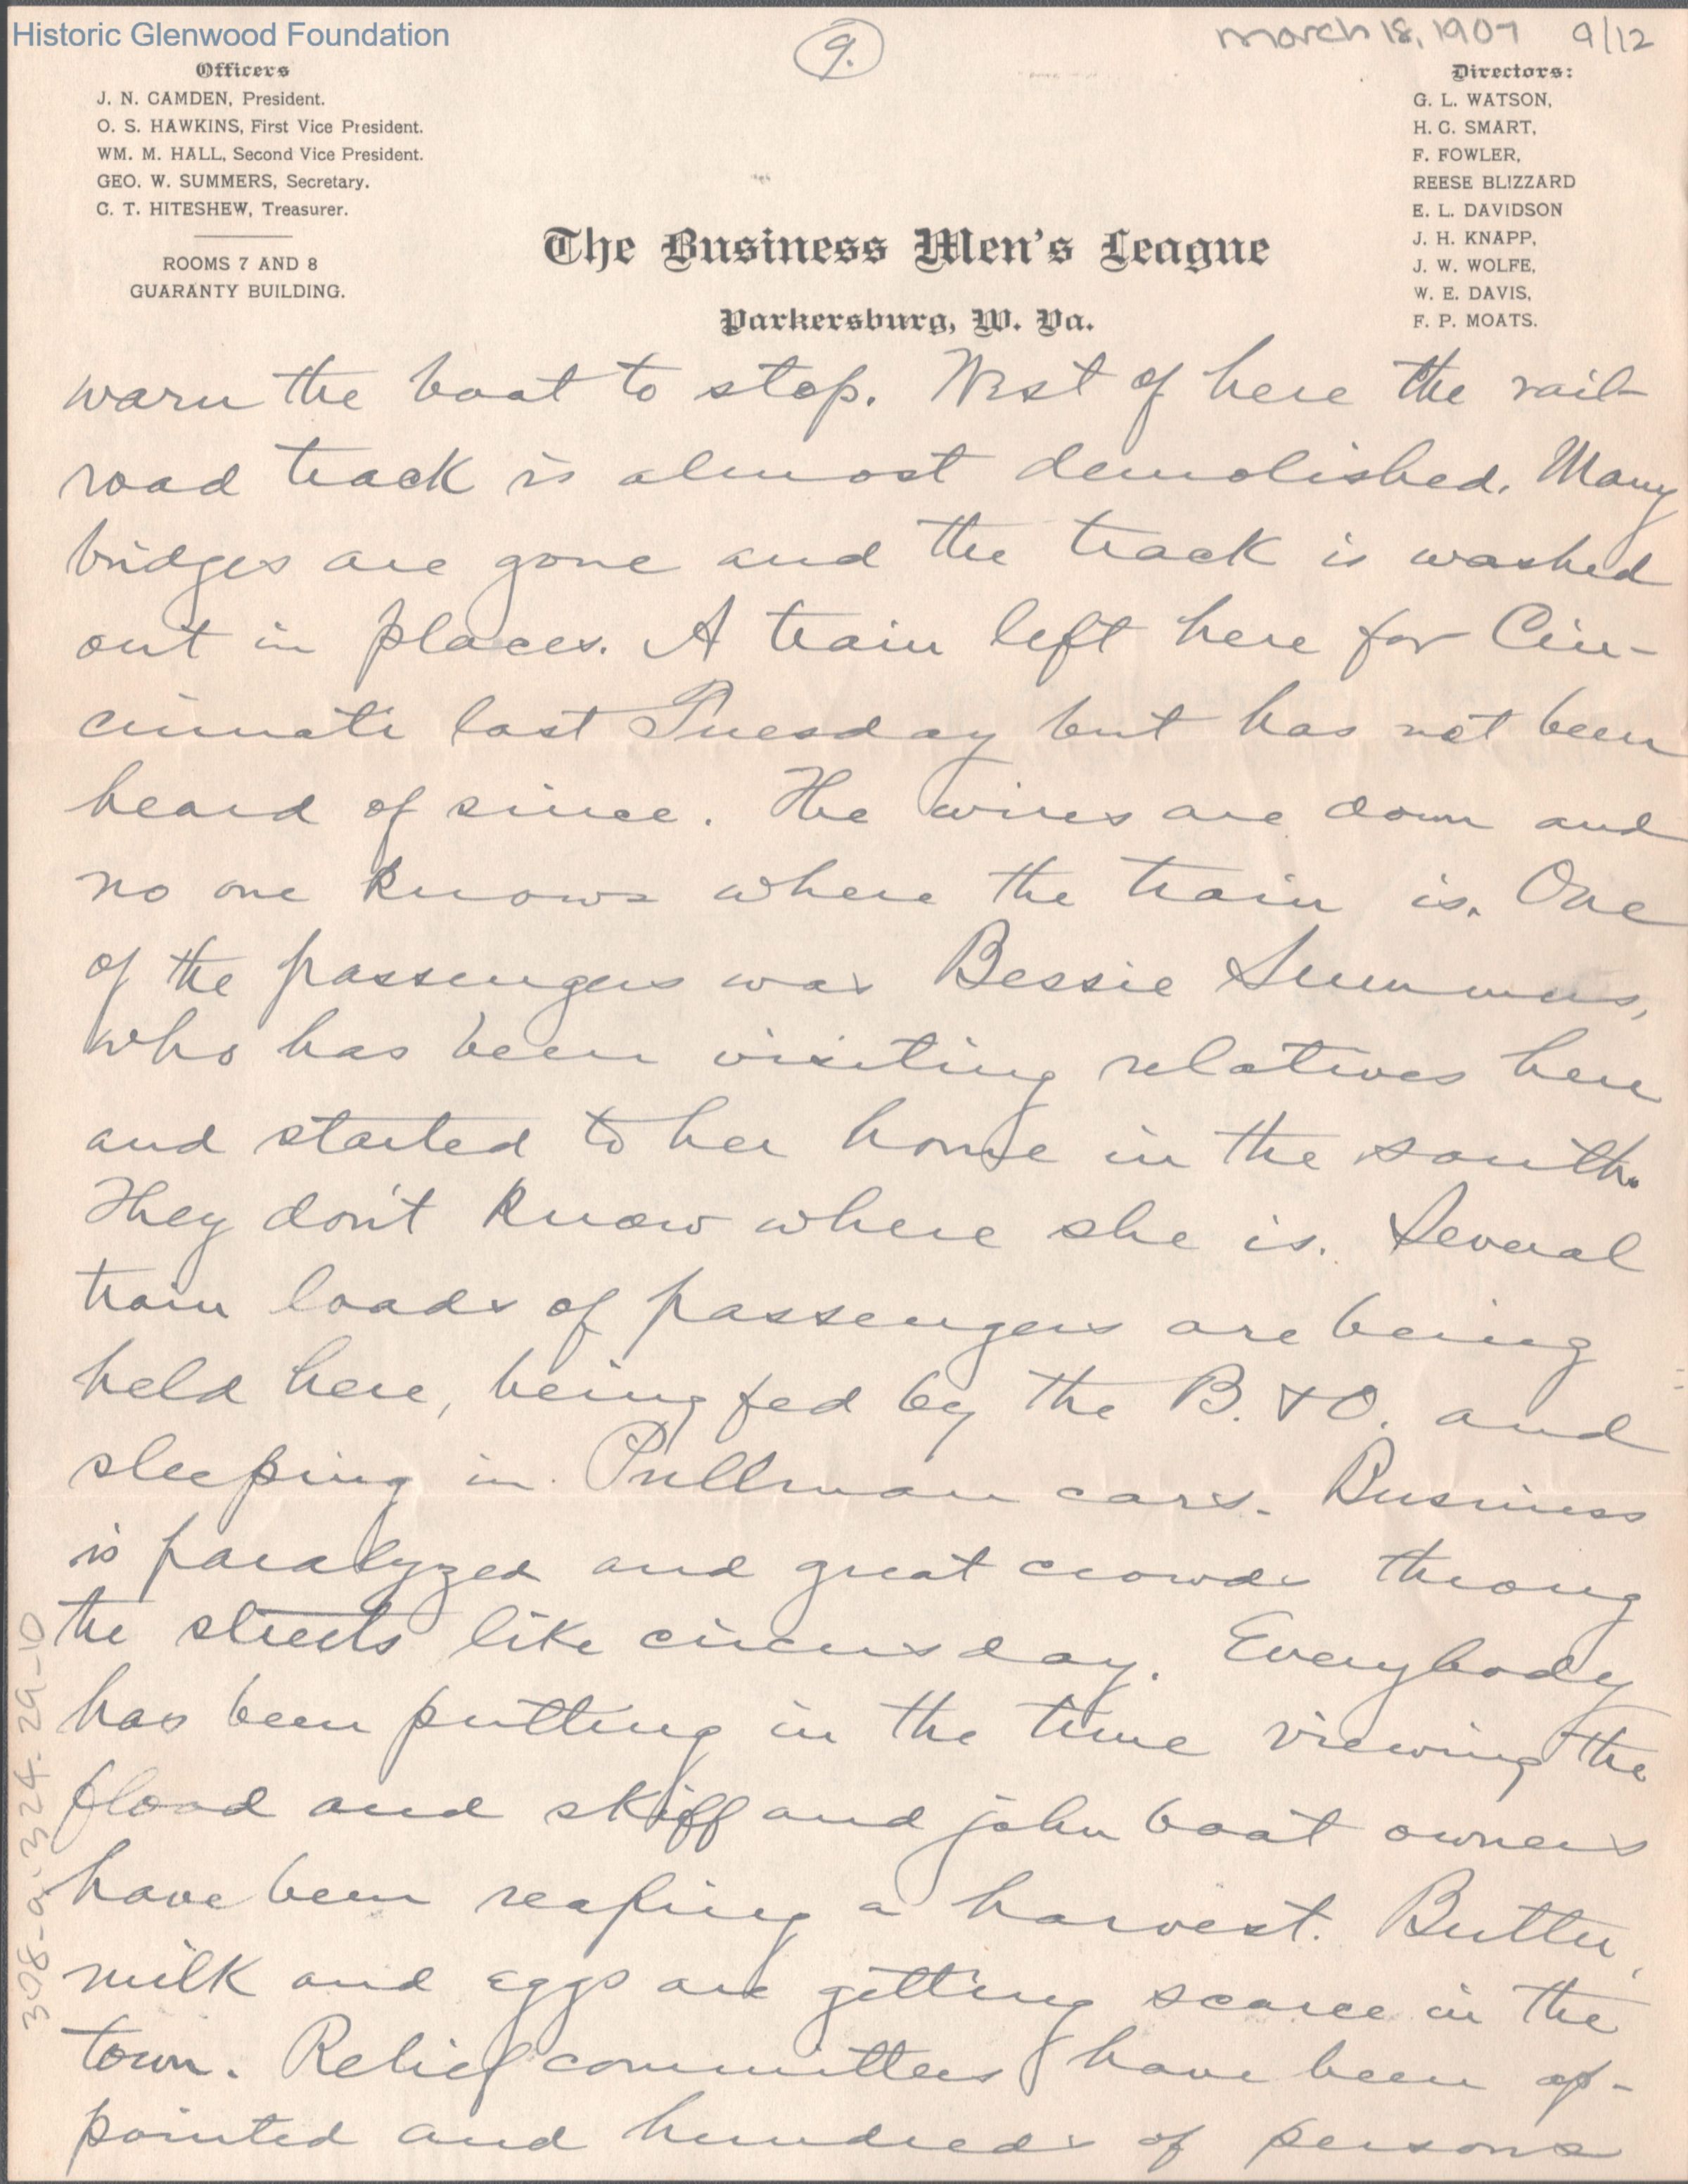 Historic Glenwood Foundation
9.
March 18, 1907 9/12
Officers
J. N. CAMDEN, President.
O. S. HAWKINS, First Vice President.
WM. M. HALL, Second Vice President.
GEO. W. SUMMERS, Secretary.
C. T. HITESHEW, Treasurer.
ROOMS 7 AND 8
GUARANTY BUILDING.
The Business Men's League
Parkersburg, W. Va.
Directors:
G. L. WATSON,
H. C. SMART,
F. FOWLER,
REESE BLIZZARD
E. L. DAVIDSON
J. H. KNAPP,
J. W. WOLFE,
W. E. DAVIS,
F. P. MOATS.
warn the boat to stop. West of here the rail-
road track is almost demolished. Many
bridges are gone and the track is washed
out in places. A train left here for Cin-
cinnati last Tuesday but has not been
heard of since. The wires are down and
no one knows where the train is. One
of the passengers was Bessie Summers,
who has been visiting relatives here
and started to her home in the south.
They don't know where she is. Several
train loads of passengers are being
held here, being fed by the B. & O. and
sleeping in Pullman cars. Business
is paralyzed and great crowds throng
the streets like circus day. Everybody
has been putting in the time viewing the
flood and skiff and john boat owners
have been reaping a harvest. Butter,
milk and eggs are getting scarce in the
town. Relief committees have been ap-
pointed and hundreds of persons
308-a-324-29-10